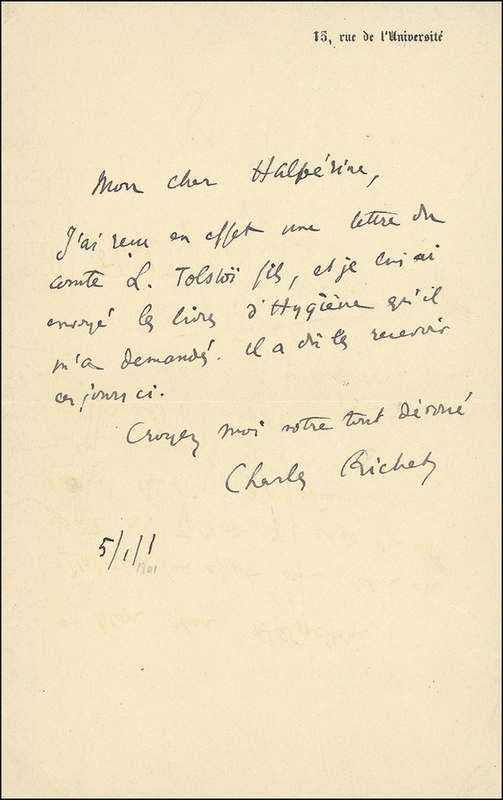 15, rue de l'Université
Mon cher Halpérine,
J'ai reçu en effet une lettre du
comte L. Tolstoï fils, et je lui ai
envoyé les livres d'Hygiène qu'il
m'a demandés. il a dû les recevoir
ces jours ci.
Croyez moi votre tout dévoué
Charles Richet
5/1/1
1901